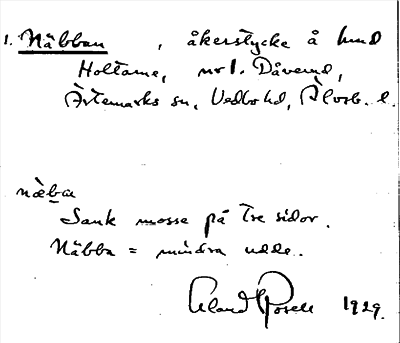 1. Näbban , åkerstycke å lund
Holtarne, nr 1. Dåverud,
Ärtemarks sn, Vedbo hd, Älvsb. l.
næba
Sank mosse på tre sidor.
Näbba = mindre udde.
Erland Rosell 1929.